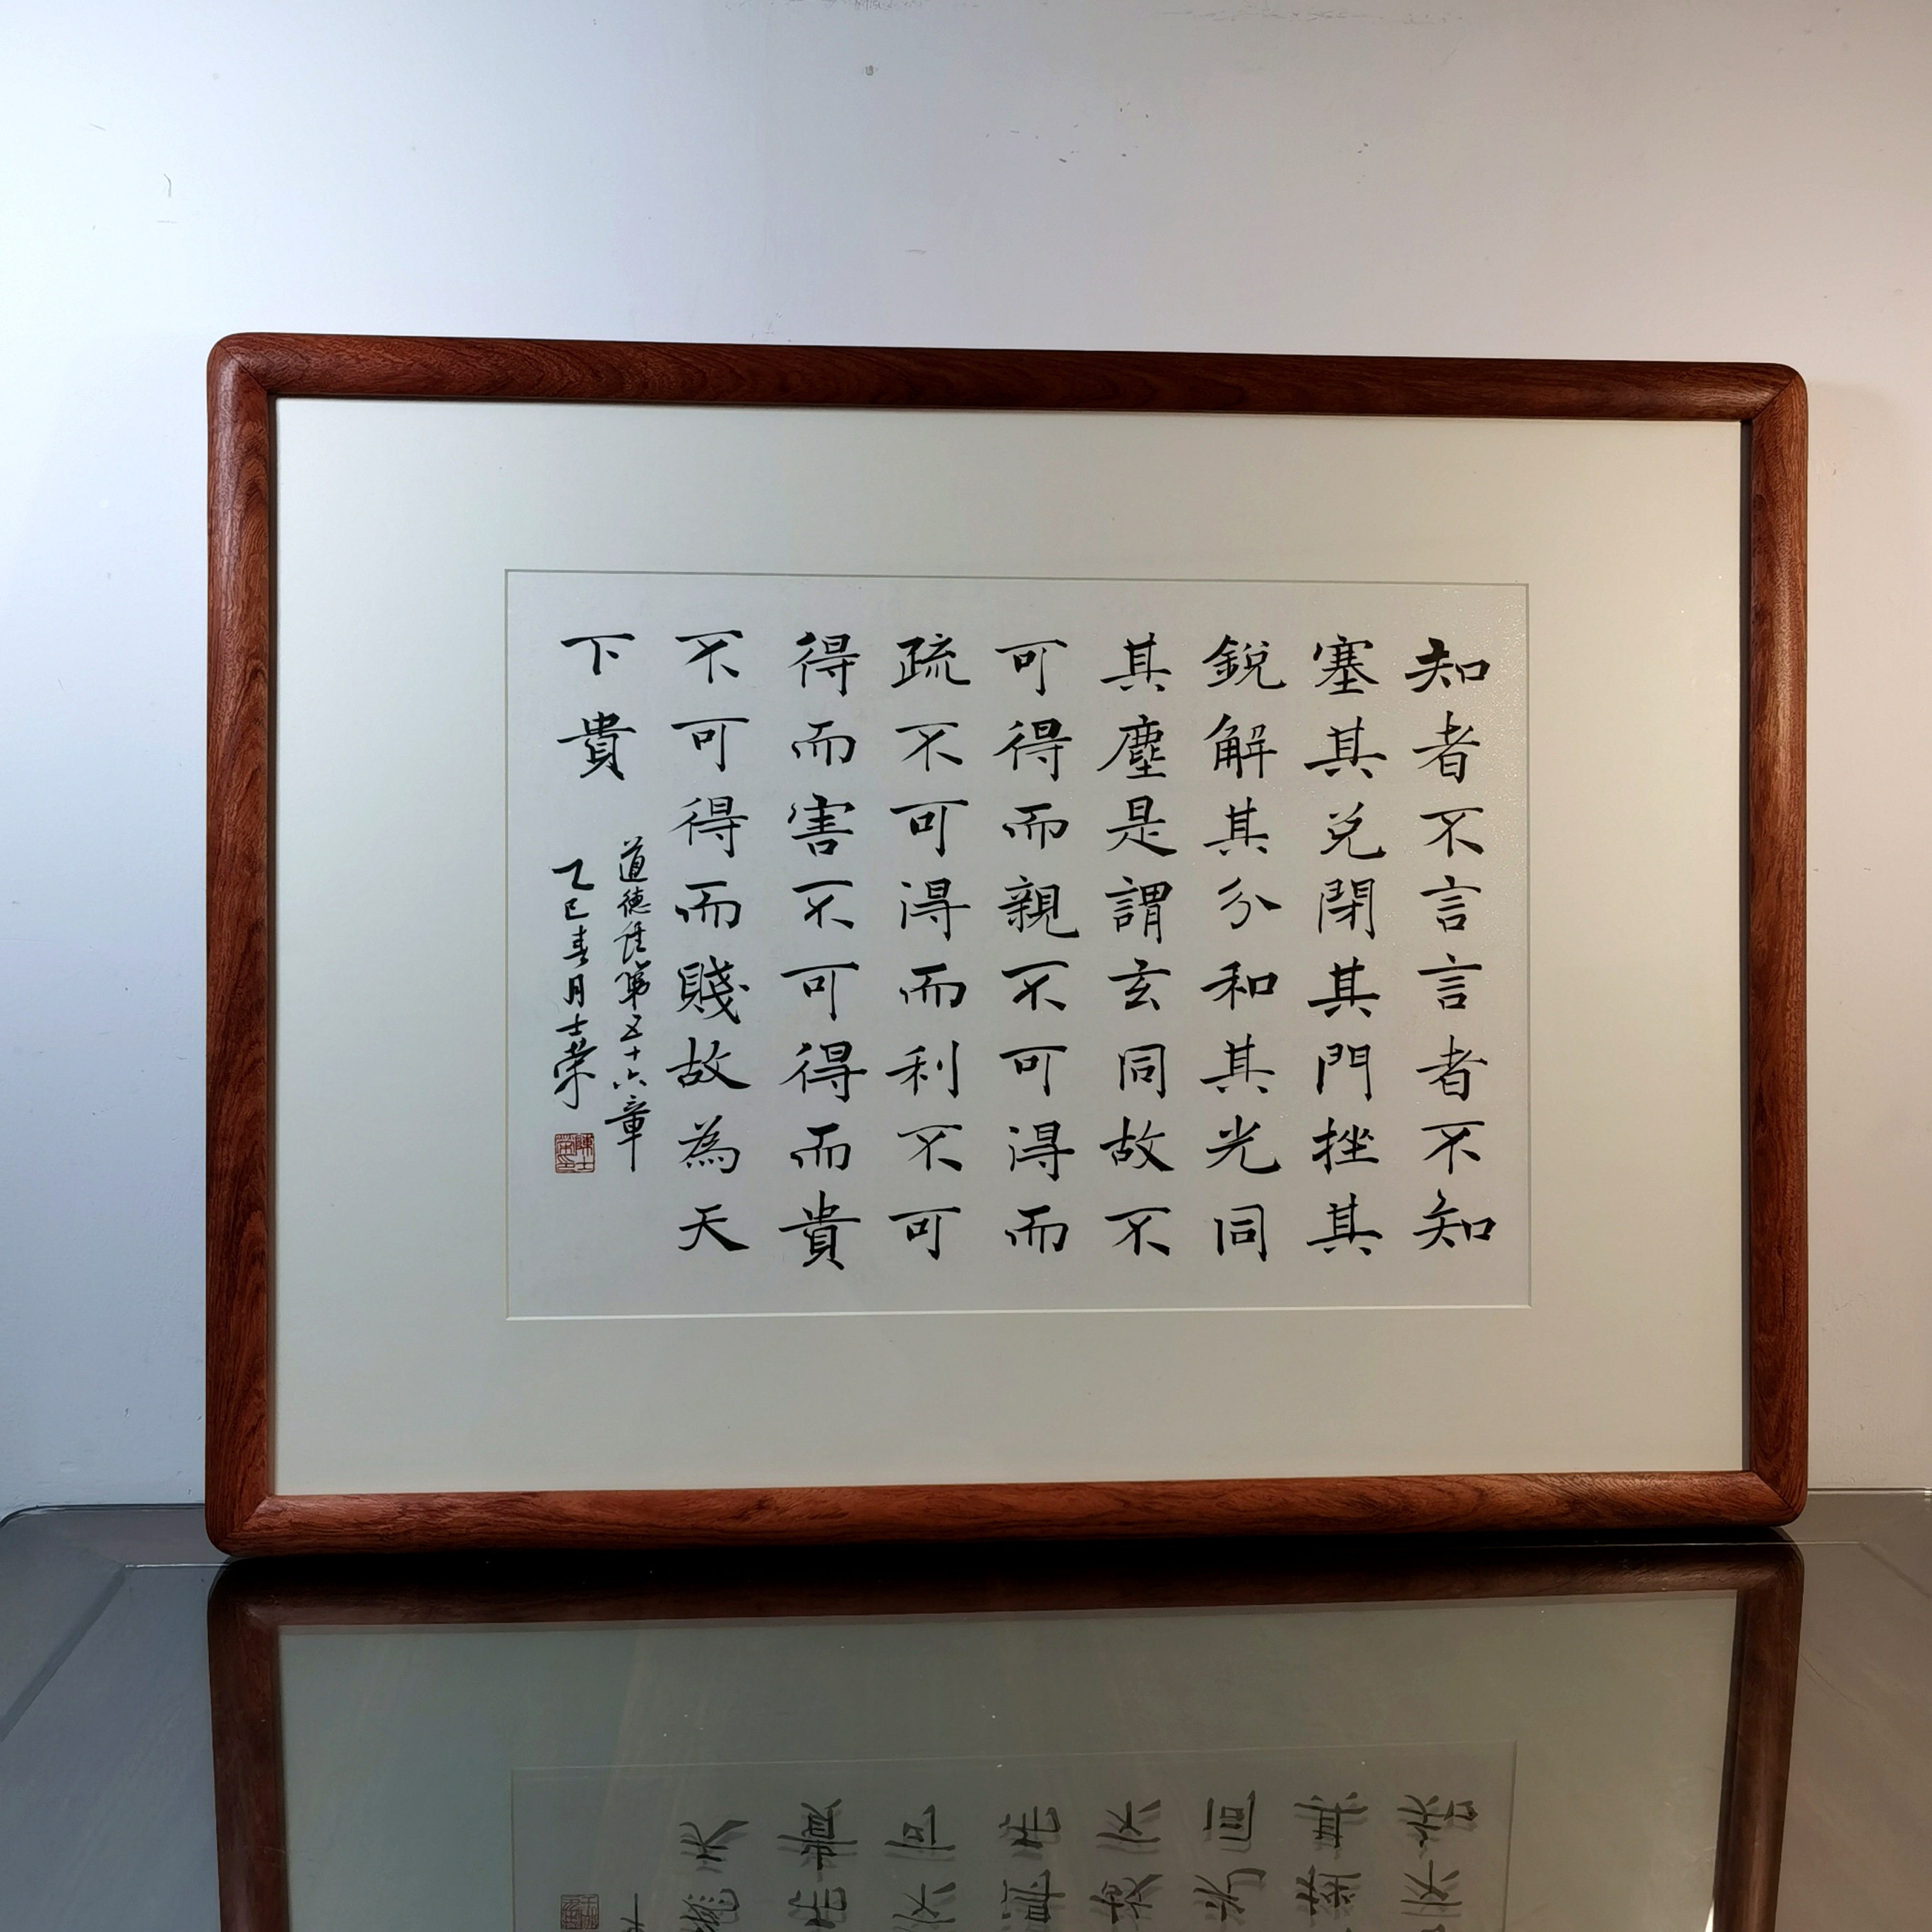 知者不言言者不知
塞其兌閉其門挫其
銳解其分和其光同
其塵是謂玄同故不
可得而親不可得而
疏不可得而利不可
得而害不可得而貴
不可得而賤故為天
下貴
道德經第五十六章
乙巳春月士榮
陳士榮印